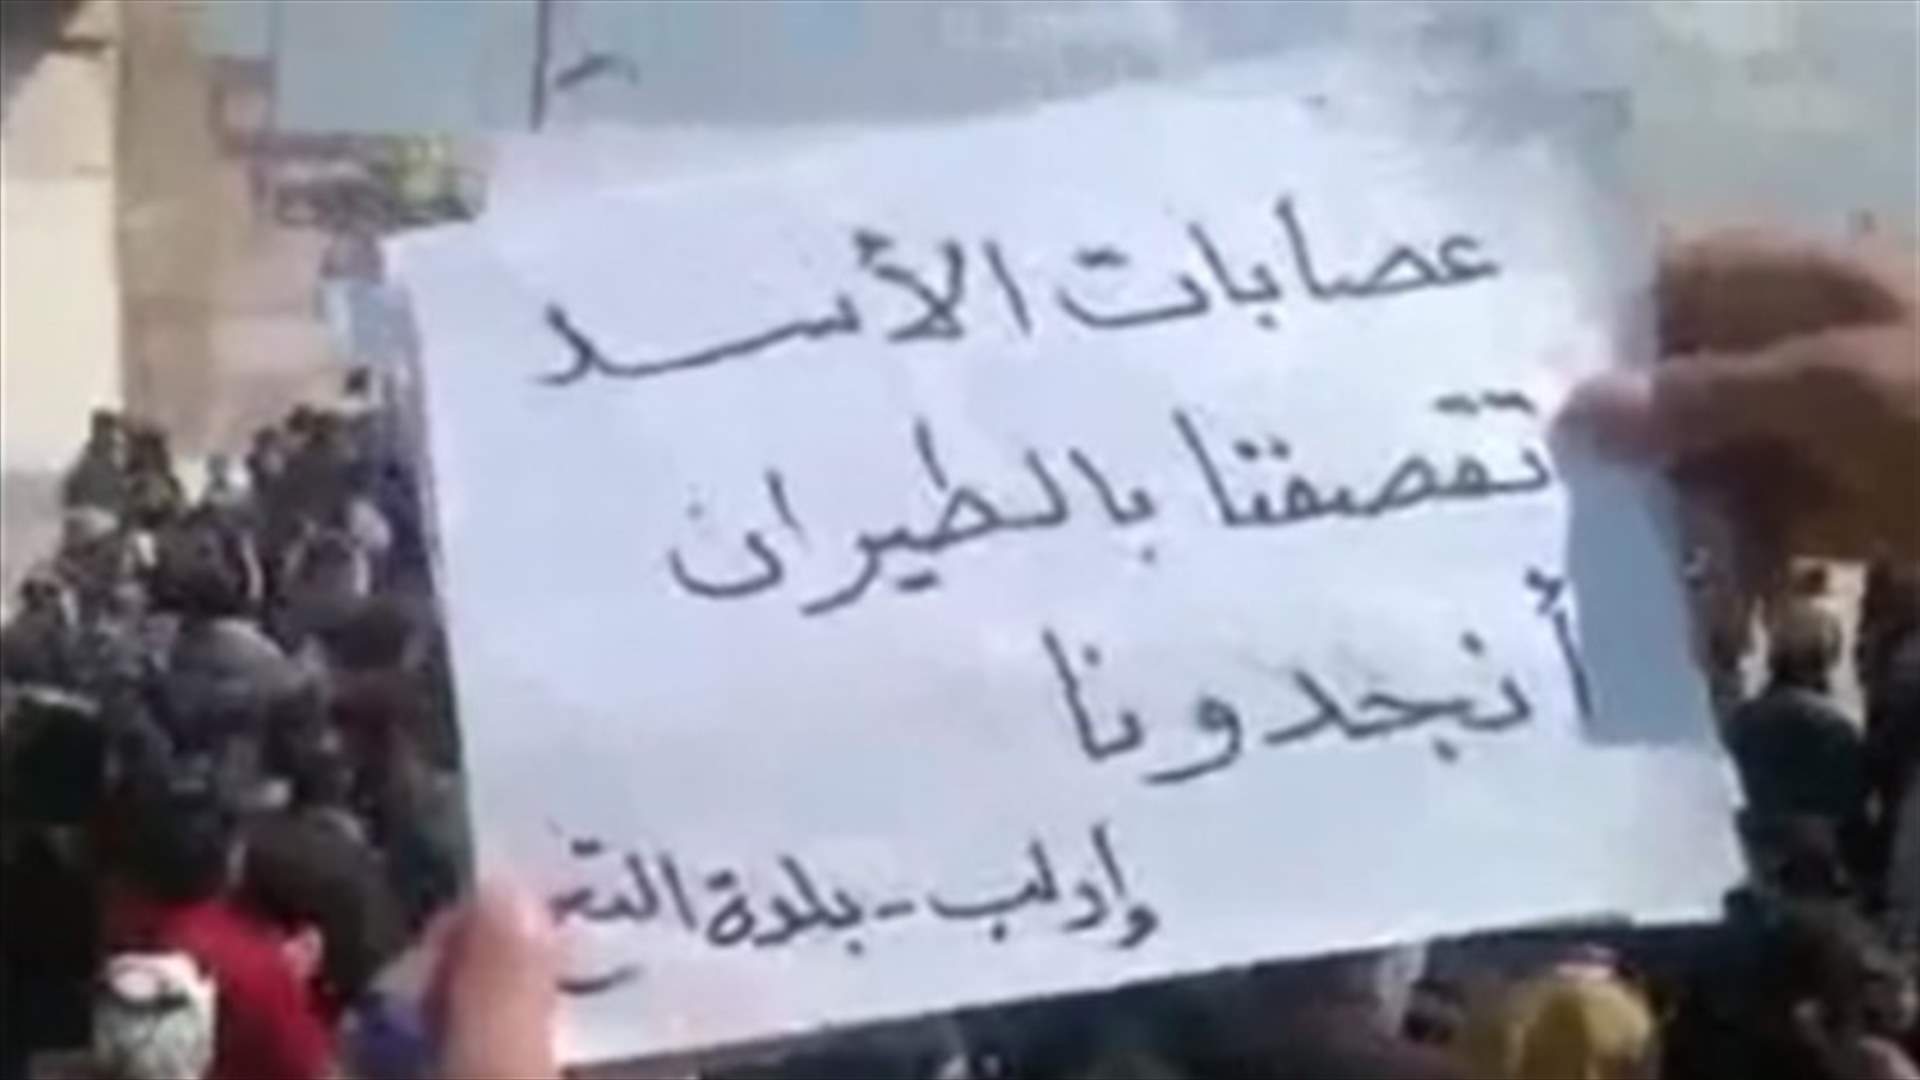 عصابات الأسد
تقصفنا بالطيران
أنجدونا
إدلب - بلدة